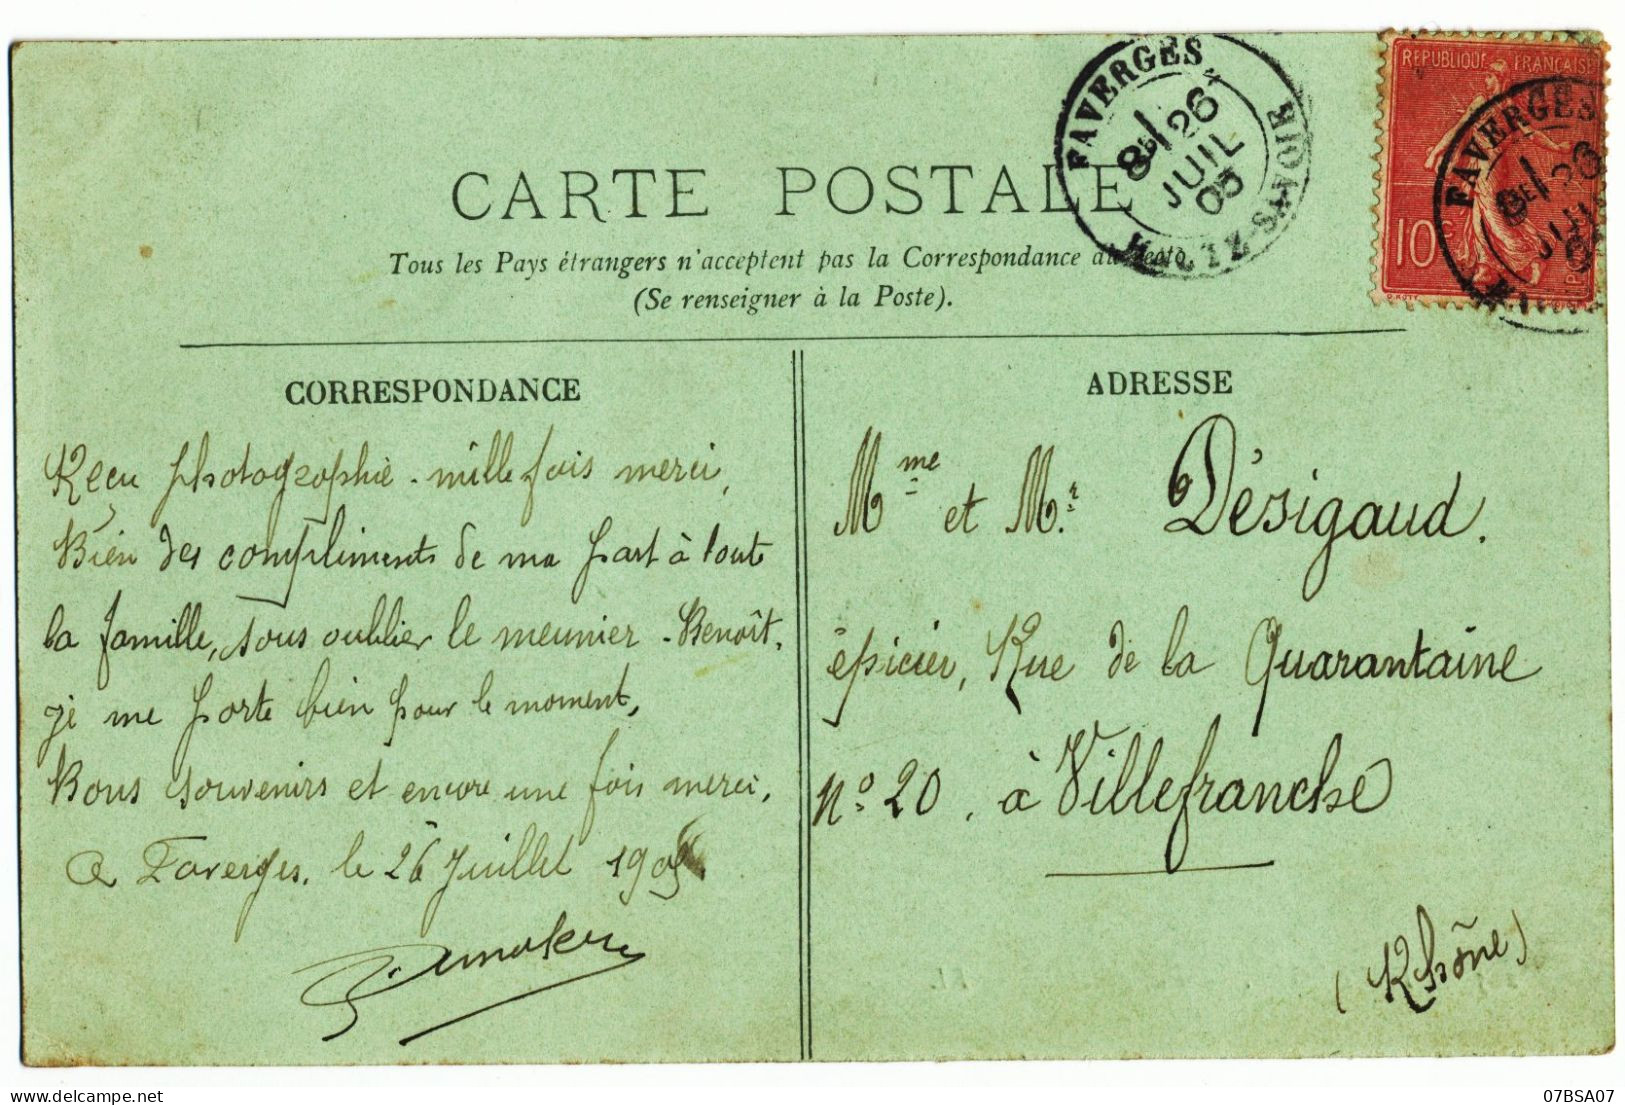 CARTE POSTALE
Tous les Pays étrangers n'acceptent pas la Correspondance au recto
(Se renseigner à la Poste).
FAVERGES
8E/26
JUIL
05
HTE SAVOIE
REPUBLIQUE FRANÇAISE
10c
O. ROTY
FAVERGES
8E/26
JUIL
CORRESPONDANCE
Reçu photographie - mille fois merci,
Bien des compliments de ma part à toute
la famille, sans oublier le meunier - Benoît.
je me porte bien pour le moment,
Bons souvenirs et encore une fois merci,
A Faverges, le 26 Juillet 1905
ADRESSE
Mme et Mr. Désigaud.
épicier, Rue de la Quarantaine
No. 20, à Villefranche
(Rhône)
07BSA07